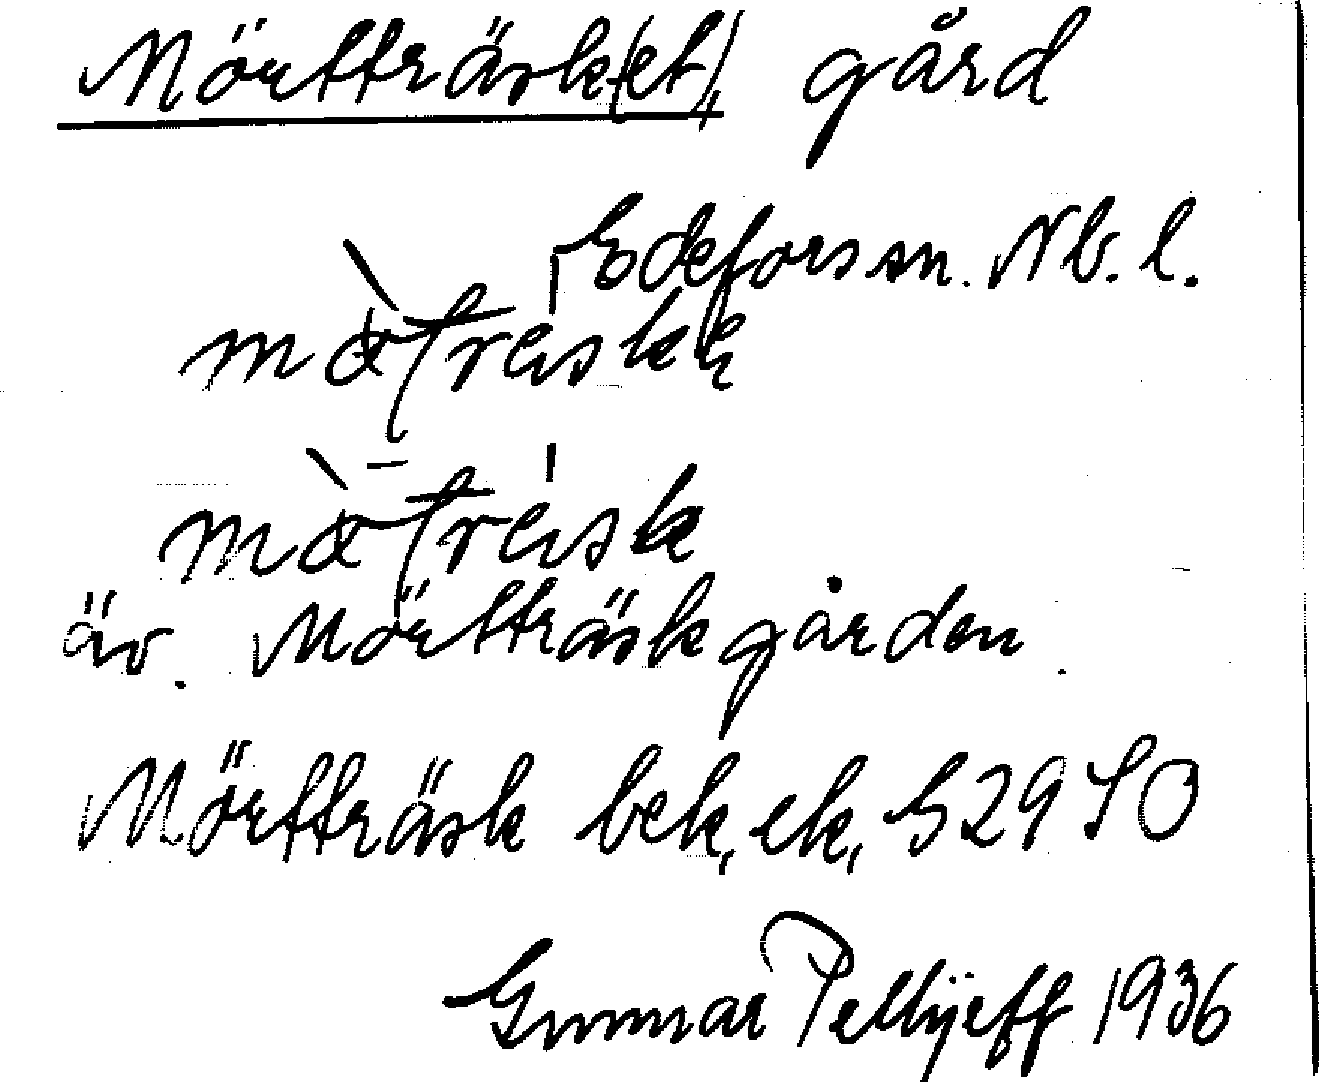 Mörtträsk(et), gård
Edefors sn. Nb. l.
äv. Mörtträskgården.
Mörtträsk bek, ek, S2970
Gunnar Pellijeff 1936